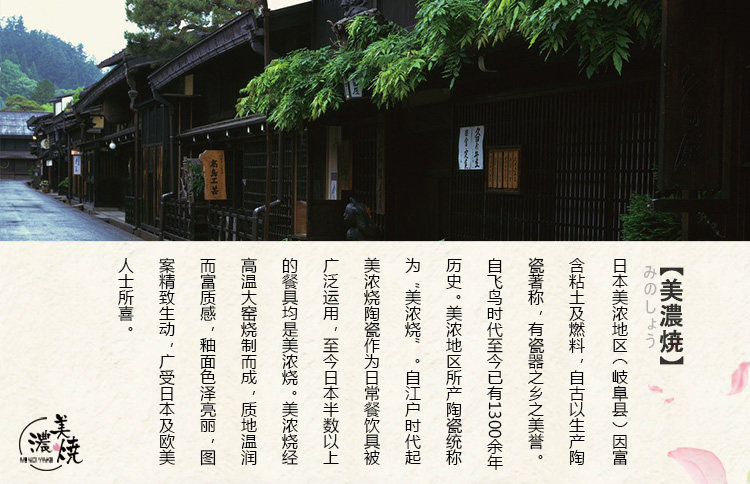 【美濃焼】
みのしょう
日本美浓地区（岐阜县）因富
含粘土及燃料，自古以生产陶
瓷著称，有瓷器之乡之美誉。
自飞鸟时代至今已有1300余年
历史。美浓地区所产陶瓷统称
为“美浓烧”。自江户时代起
美浓烧陶瓷作为日常餐饮具被
广泛运用，至今日本半数以上
的餐具均是美浓烧。美浓烧经
高温大窑烧制而成，质地温润
而富质感，釉面色泽亮丽，图
案精致生动，广受日本及欧美
人士所喜。
美濃焼
MINO YAKI